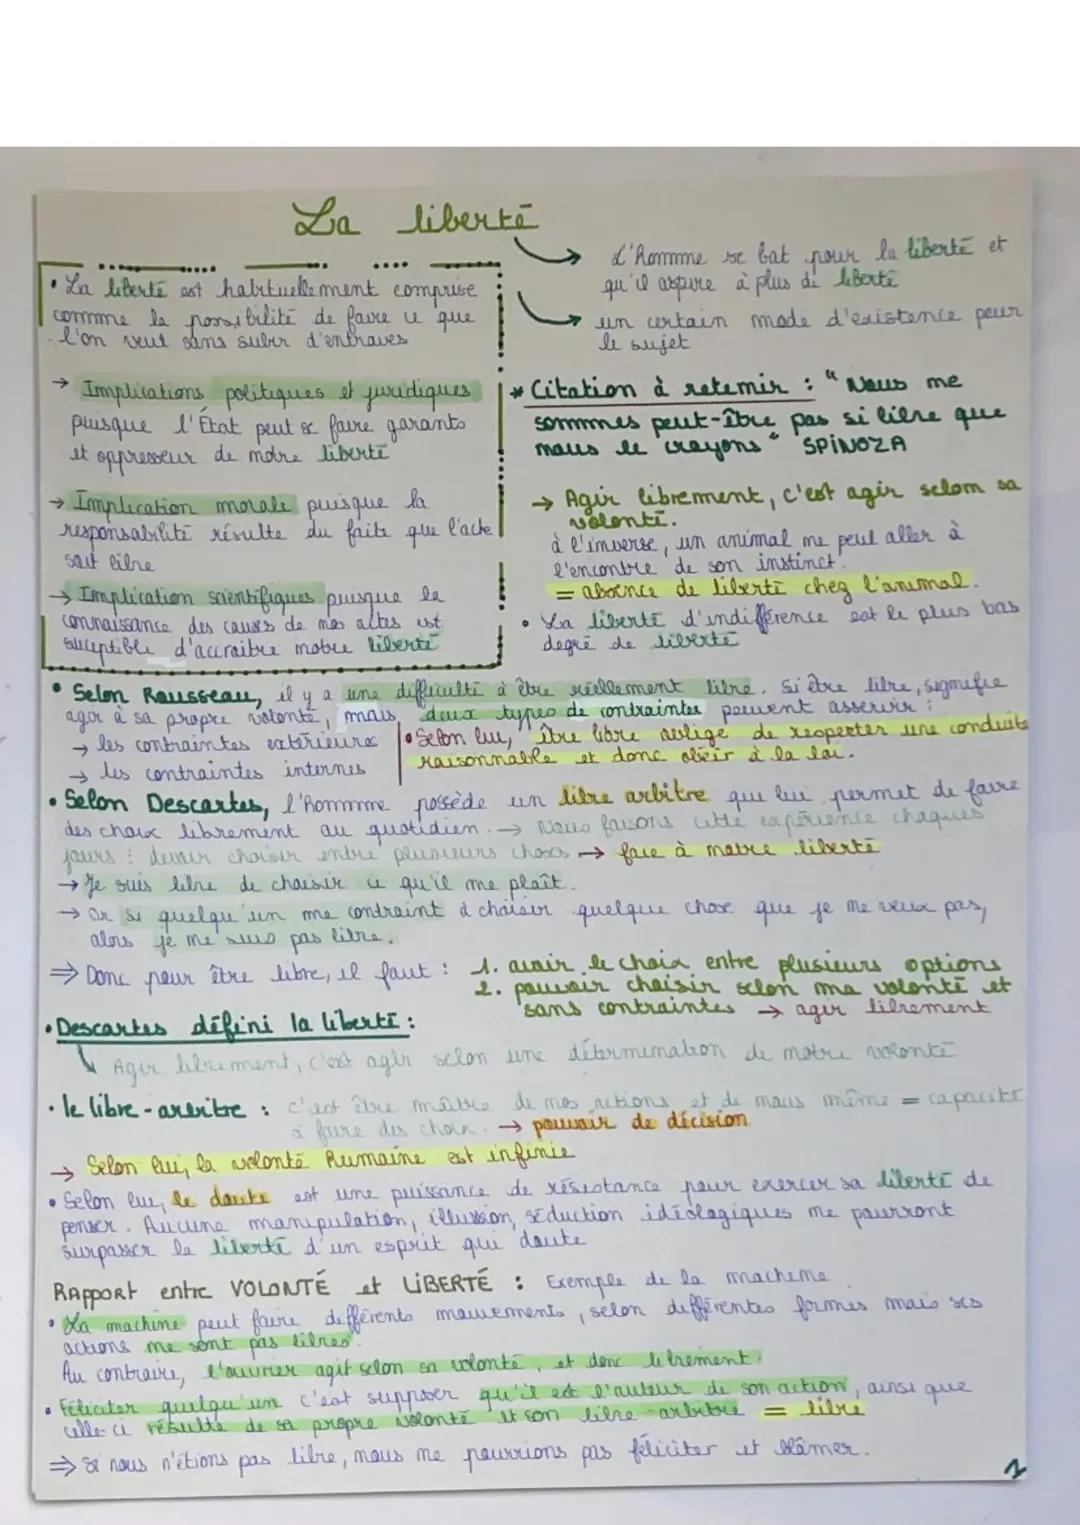 La liberté
L'Homme se bat pour la liberté et
qu'il aspire à plus de liberté
un certain mode d'existence pour
le sujet
• La liberté est habituellement comprise
comme la possibilité de faire ce que
l'on veut sans subir d'entraves
→ Implications politiques et juridiques
puisque l'État peut se faire garants
et oppresseur de notre liberté
→ Implication morale puisque la
responsabilité résulte du faite que l'acte
soit libre
→ Implication scientifiques puisque la
connaissance des causes de nos actes est
susceptible d'accraitre notre liberté
* Citation à retenir : " Nous ne
sommes peut-être pas si libre que
nous le croyons " SPINOZA
→ Agir librement, c'est agir selon sa
volonté.
à l'inverse, un animal ne peut aller à
l'encontre de son instinct.
= absence de liberté chez l'animal.
• La liberté d'indifférence est le plus bas
degré de liberté
• Selon Rousseau, il y a une difficulté à être réellement libre. Si être libre, signifie
agir à sa propre volonté, mais deux types de contraintes peuvent asservir :
→ les contraintes extérieures
→ les contraintes internes
• Selon lui, être libre oblige de respecter une conduite
raisonnable et donc obéir à la loi.
• Selon Descartes, l'Homme possède un libre arbitre qui lui permet de faire
des choix librement au quotidien. → Nous faisons cette expérience chaques
jours : devoir choisir entre plusieurs choses → face à notre liberté
→ Je suis libre de choisir ce qu'il me plaît.
→ Or si quelqu'un me contraint à choisir quelque chose que je ne veux pas,
alors je ne suis pas libre.
⇒ Donc pour être libre, il faut : 1. avoir le choix entre plusieurs options
2. pouvoir choisir selon ma volonté et
sans contraintes → agir librement
• Descartes défini la liberté :
↳ Agir librement, c'est agir selon une détermination de notre volonté
• le libre-arbitre : c'est être maître de nos actions et de nous même = capacité
à faire des choix. → pouvoir de décision
→ Selon lui, la volonté humaine est infinie
• Selon lui, le doute est une puissance de résistance pour exercer sa liberté de
penser. Aucune manipulation, illusion, séduction idéologiques ne pourront
surpasser la liberté d'un esprit qui doute
RAPPORT entre VOLONTÉ et LIBERTÉ : Exemple de la machine
• La machine peut faire différents mouvements, selon différentes formes mais ses
actions ne sont pas libres.
Au contraire, l'ouvrier agit selon sa volonté, et donc librement.
• Féliciter quelqu'un c'est supposer qu'il est l'auteur de son action, ainsi que
celle-ci résulte de sa propre volonté et son libre-arbitre = libre
⇒ Si nous n'étions pas libre, nous ne pourrions pas féliciter et blâmer.
1